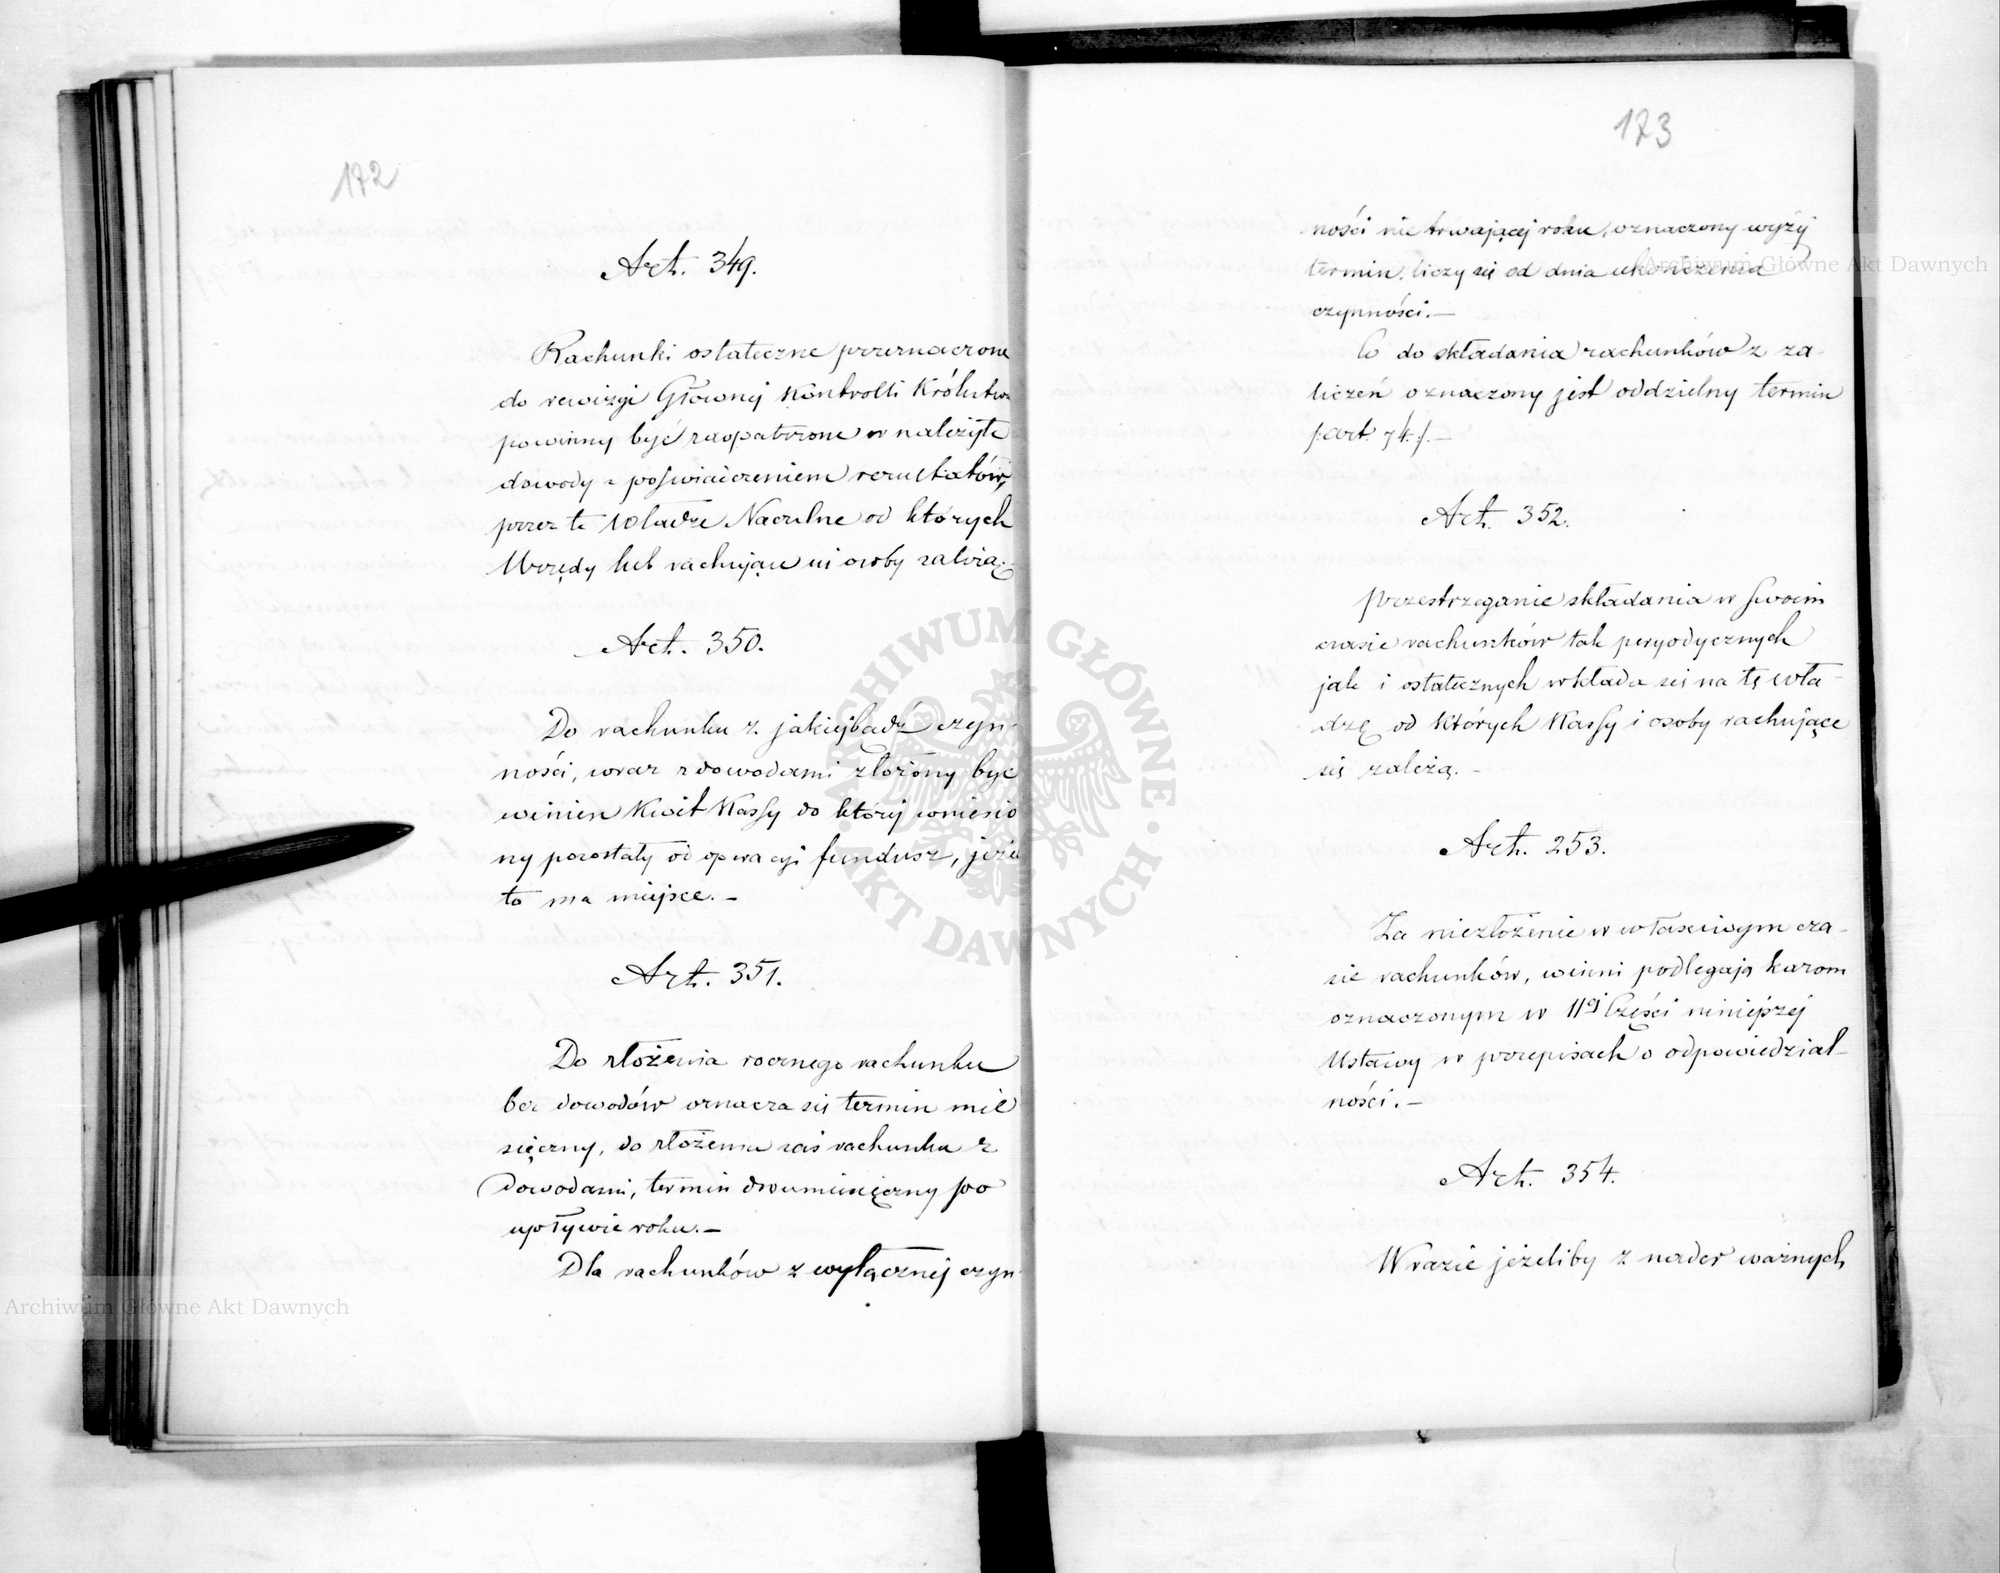 172
Art. 349.
Rachunki ostateczne przeznaczone
do rewizyi Głownej Kontrolli Królestwa
powinny być zaopatrzone w należyte
dowody z poświadczeniem rezultatów,
przez te Władze Naczelne od których
Urzędy lub rachujące się osoby zależą.
Art. 350.
Do rachunku z jakiejbądź czyn-
ności, wraz z dowodami złożony być
winien Kwit Kassy do której wniesio
ny pozostały od operacyi fundusz, jeżeli
to ma miejsce.—
Art. 351.
Do złożenia rocznego rachunku
bez dowodów oznacza się termin mie
sięczny, do złożenia zaś rachunku z
Dowodami, termin dwumiesięczny po
upływie roku.—
Dla rachunków z wyłącznej czyn
173
ności nie trwającej roku, oznaczony wyżej
termin, liczy się od dnia ukończenia
czynności.—
Co do składania rachunków z za-
liczeń oznaczony jest oddzielny termin
/:art. 74:/.—
Art. 352.
Przestrzeganie składania w swoim
czasie rachunków tak peryodycznych
jak i ostatecznych wkłada się na tę wła-
dzę od których Kassy i osoby rachujące
się zależą.—
Art. 253.
Za niezłożenie w właściwym cza-
sie rachunków, winni podlegają karom
oznaczonym w IIej Części niniejszej
Ustawy w przepisach o odpowiedzial-
ności.—
Art. 354.
W razie jeżeliby z nader ważnych
Archiwum Główne Akt Dawnych
ARCHIWUM GŁÓWNE
AKT DAWNYCH
Archiwum Główne Akt Dawnych